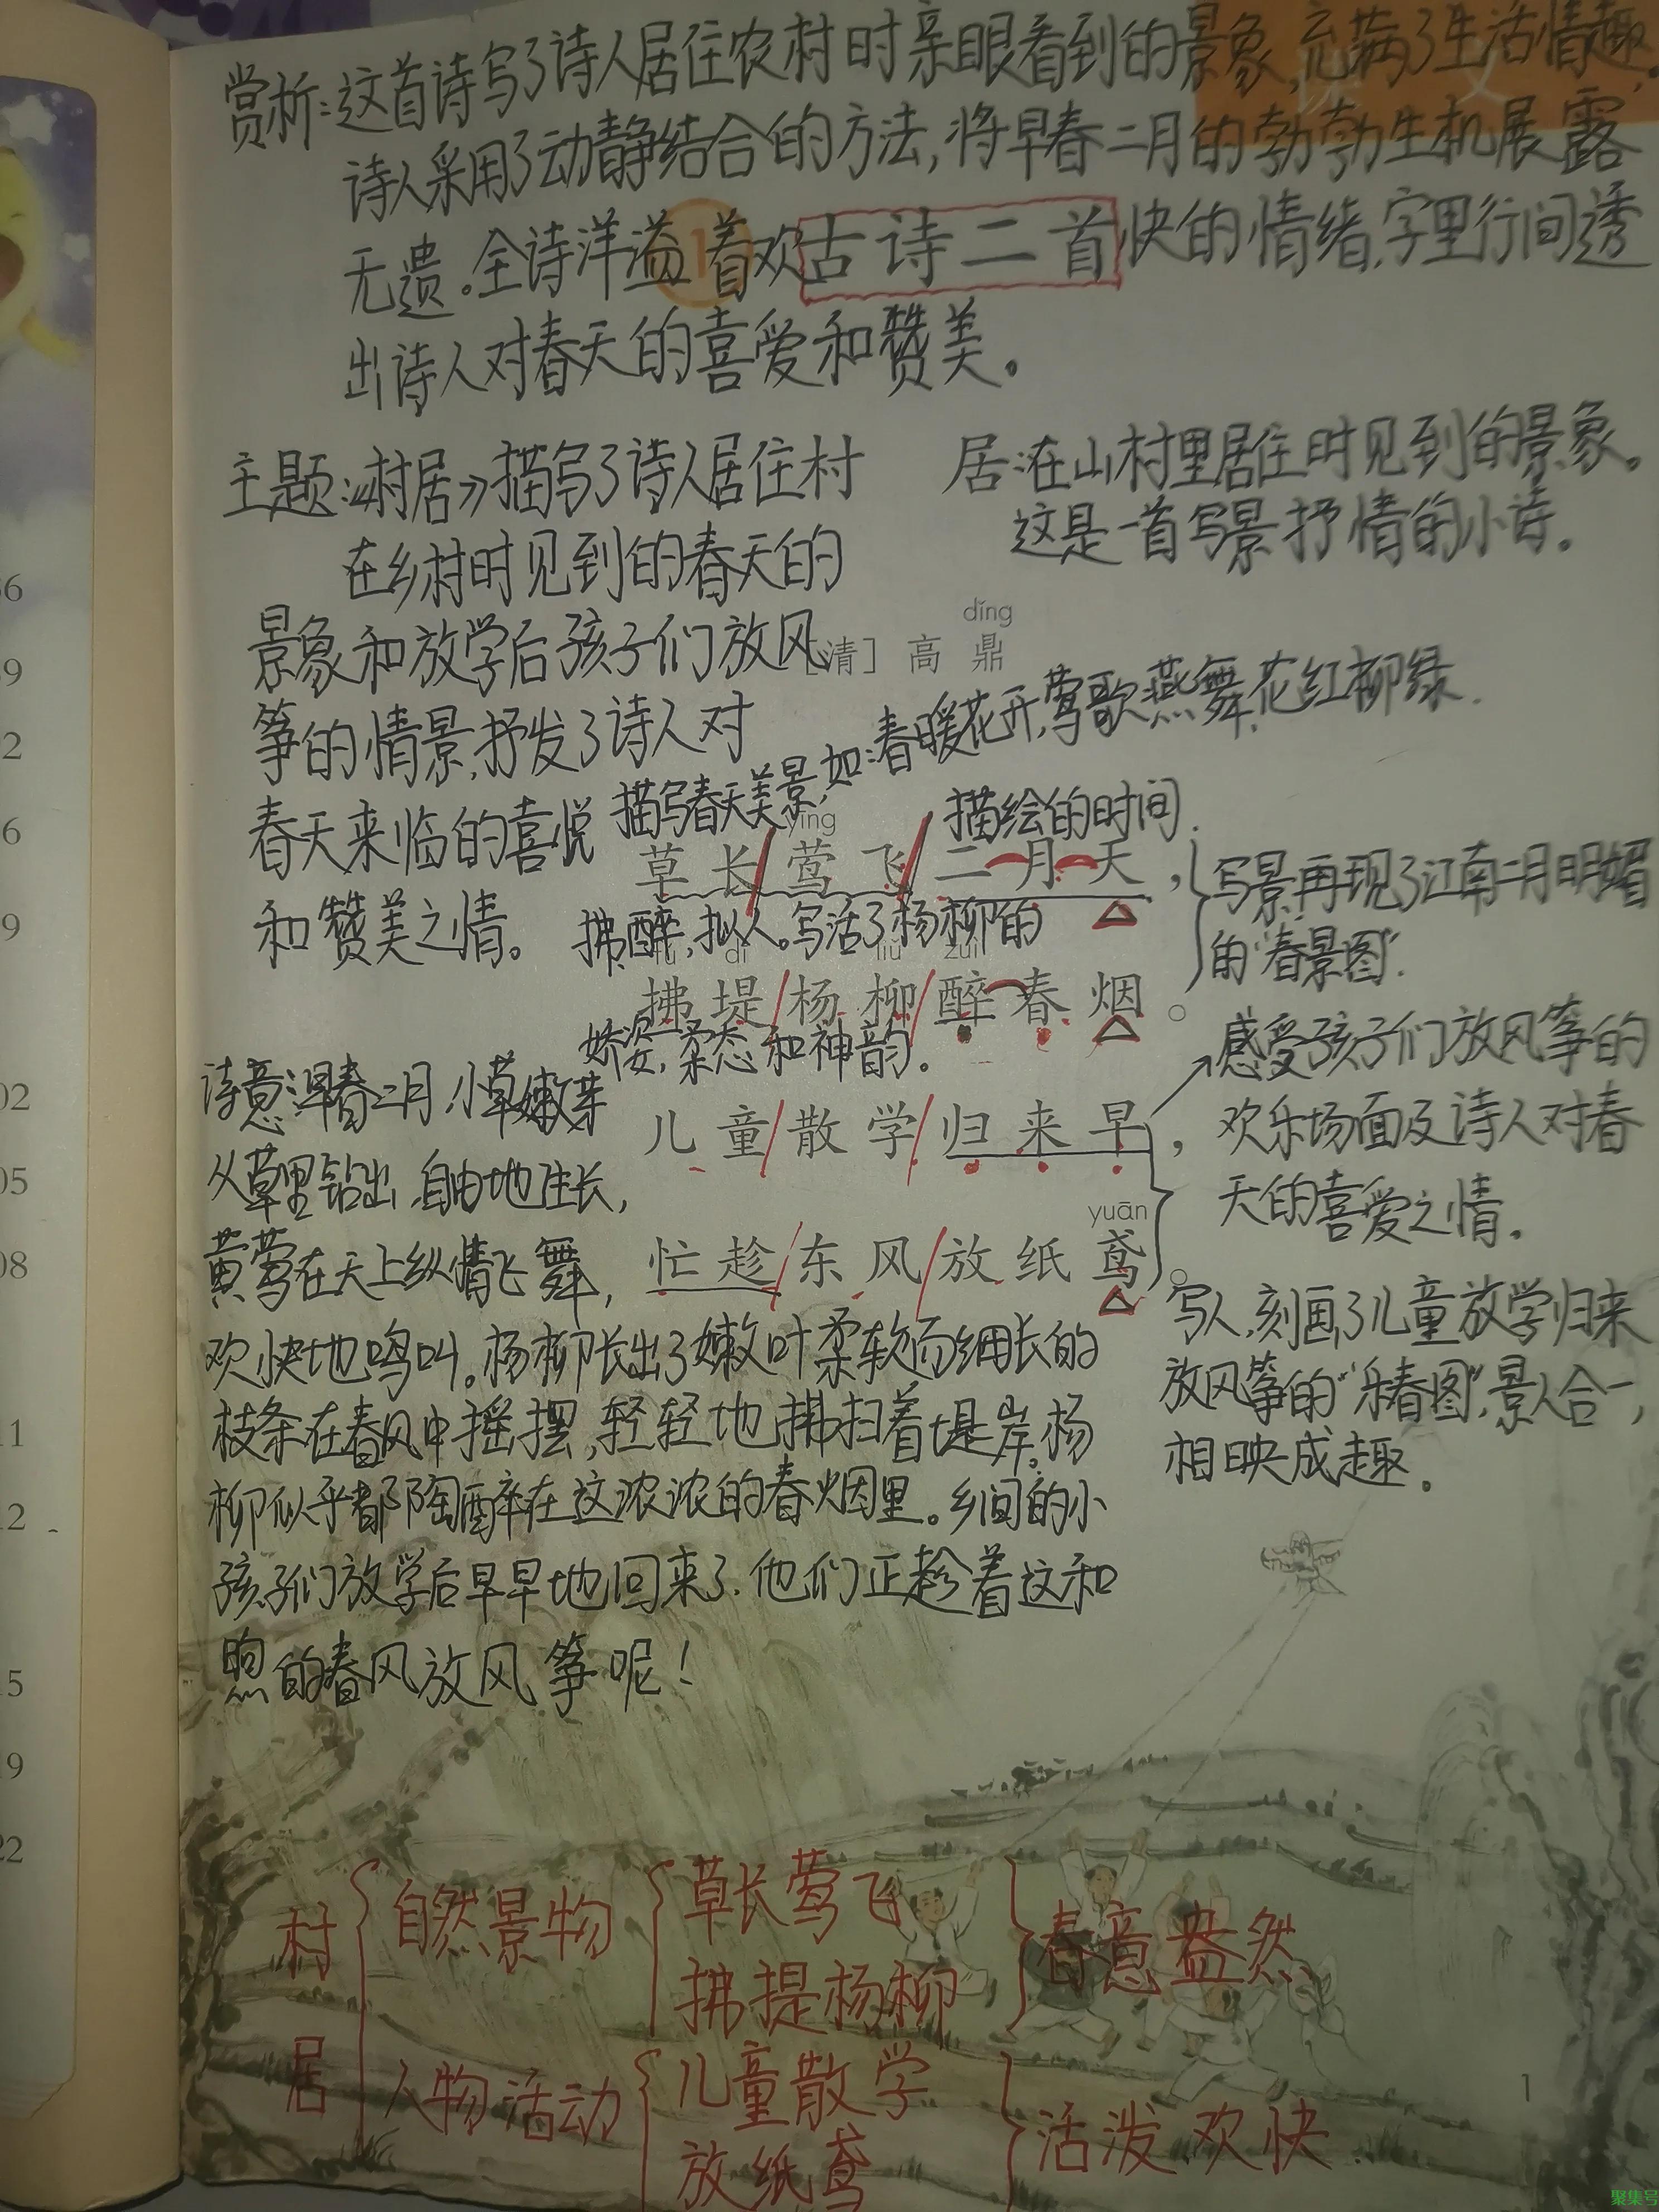 课文
赏析:这首诗写了诗人居住农村时亲眼看到的景象,充满了生活情趣,
诗人采用了动静结合的方法,将早春二月的勃勃生机展露
无遗。全诗洋溢着欢快的情绪,字里行间透
1 古诗二首
出诗人对春天的喜爱和赞美。
主题:《村居》描写了诗人居住村
在乡村时见到的春天的
景象和放学后孩子们放风
筝的情景,抒发了诗人对
春天来临的喜悦
和赞美之情。
居:在山村里居住时见到的景象。
这是一首写景抒情的小诗。
dǐng
[清]高鼎
描写春天美景,如:春暖花开,莺歌燕舞,花红柳绿.
描绘的时间.
yīng
草长莺飞二月天,
写景再现了江南二月明媚
的“春景图”.
拂,醉,拟人。写活了杨柳的
fú dī liǔ zuì
拂堤杨柳醉春烟。
娇姿,柔态和神韵。
儿童散学归来早,
感受孩子们放风筝的
欢乐场面及诗人对春
天的喜爱之情。
yuān
忙趁东风放纸鸢。
写人,刻画了儿童放学归来
放风筝的“乐春图”,景人合一,
相映成趣。
诗意:早春二月,小草嫩芽
从草里钻出,自由地生长,
黄莺在天上纵情飞舞,
欢快地鸣叫。杨柳长出了嫩叶柔软而细长的
枝条在春风中摇摆,轻轻地拂扫着堤岸。杨
柳似乎都陶醉在这浓浓的春烟里。乡间的小
孩子们放学后早早地回来了.他们正趁着这和
煦的春风放风筝呢!
村居
自然景物
草长莺飞
拂提杨柳
春意盎然
人物活动
儿童散学
放纸鸢
活泼欢快
1
6
9
2
6
9
02
05
08
11
12
15
19
22
聚集号